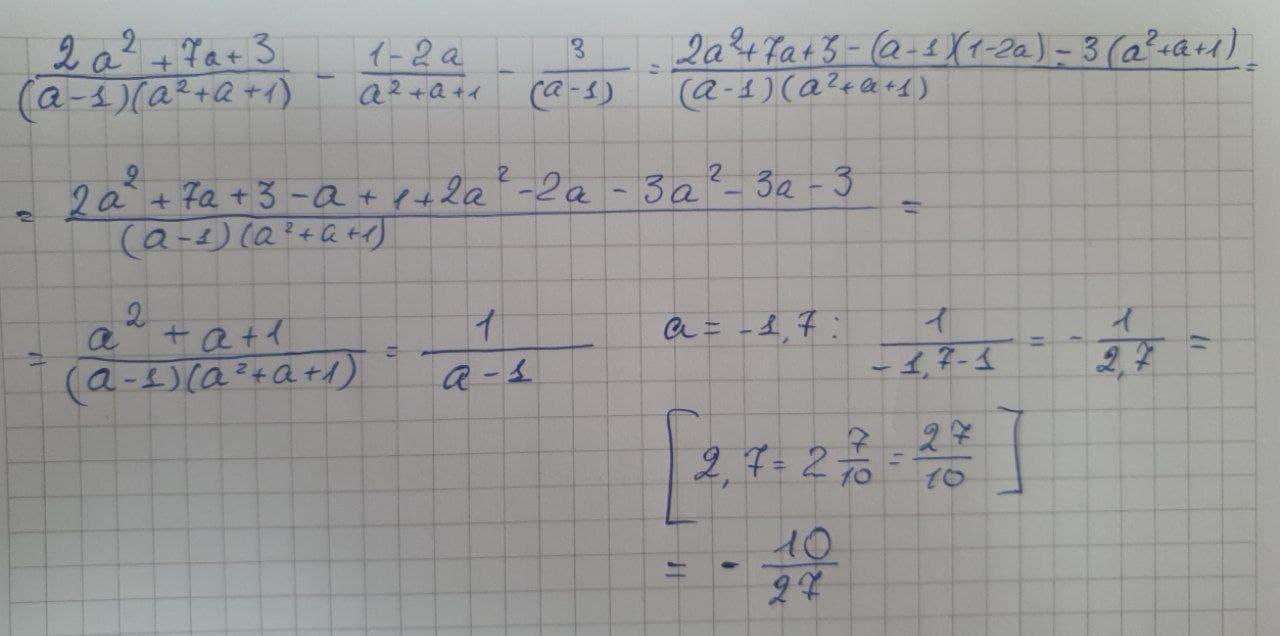 (2a² + 7a + 3)/((a - 1)(a² + a + 1)) - (1 - 2a)/(a² + a + 1) - 3/((a - 1)) = (2a² + 7a + 3 - (a - 1)(1 - 2a) - 3(a² + a + 1))/((a - 1)(a² + a + 1)) =
= (2a² + 7a + 3 - a + 1 + 2a² - 2a - 3a² - 3a - 3)/((a - 1)(a² + a + 1)) =
= (a² + a + 1)/((a - 1)(a² + a + 1)) = 1/(a - 1) a = -1,7 : 1/(-1,7 - 1) = - 1/2,7 =
[2,7 = 2 7/10 = 27/10]
= - 10/27